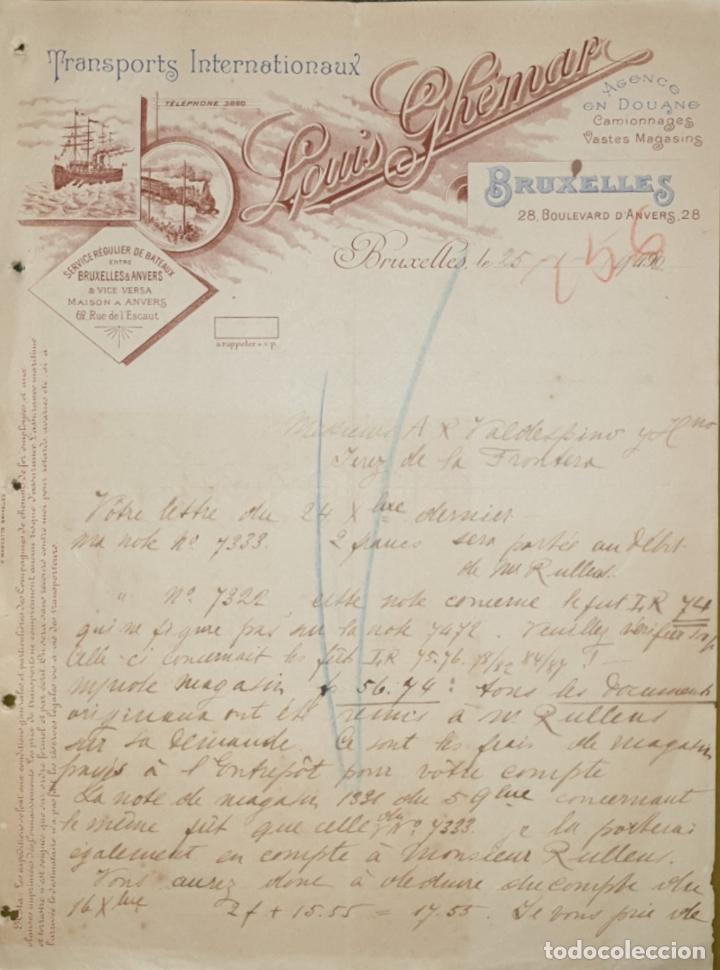 Transports Internationaux
TÉLÉPHONE 3660
Louis Ghémar
AGENCE
EN DOUANE
Camionnages
Vastes Magasins
BRUXELLES
28, BOULEVARD D'ANVERS, 28
Bruxelles, le 25
SERVICE RÉGULIER DE BATEAUX
ENTRE
BRUXELLES & ANVERS
& VICE VERSA
MAISON A ANVERS
62, Rue de l'Escaut
à rappeler s.v.p.
Messieurs A R Valdespino y Hno
Jerez de la Frontera
Vôtre lettre du 24 Xbre dernier
Ma note No 7333. 2 francs sera portés au Débit
de Mr Rullens.
" No. 7322, cette note concerne le fut I,R 74
qui ne figure pas sur la note 7472. Veuillez vérifier
Celle-ci concernait les fûts I,R 75.76. 78/82 84/87 !
note magasin fs 56.74: tous les documents
originaux ont été remis à Mr Rullens
sur sa demande. Ce sont les frais de magasin
payés à l'Entrepôt pour vôtre compte
La note de magasin 1331 du 5 9bre concernant
le même fût que celle du No. 7333. je la porterai
également en compte à Monsieur Rullens.
Vous aurez donc à déduire du compte du
16 Xbre 2 f + 15.55 = 17.55. Je vous prie de
todocoleccion.net